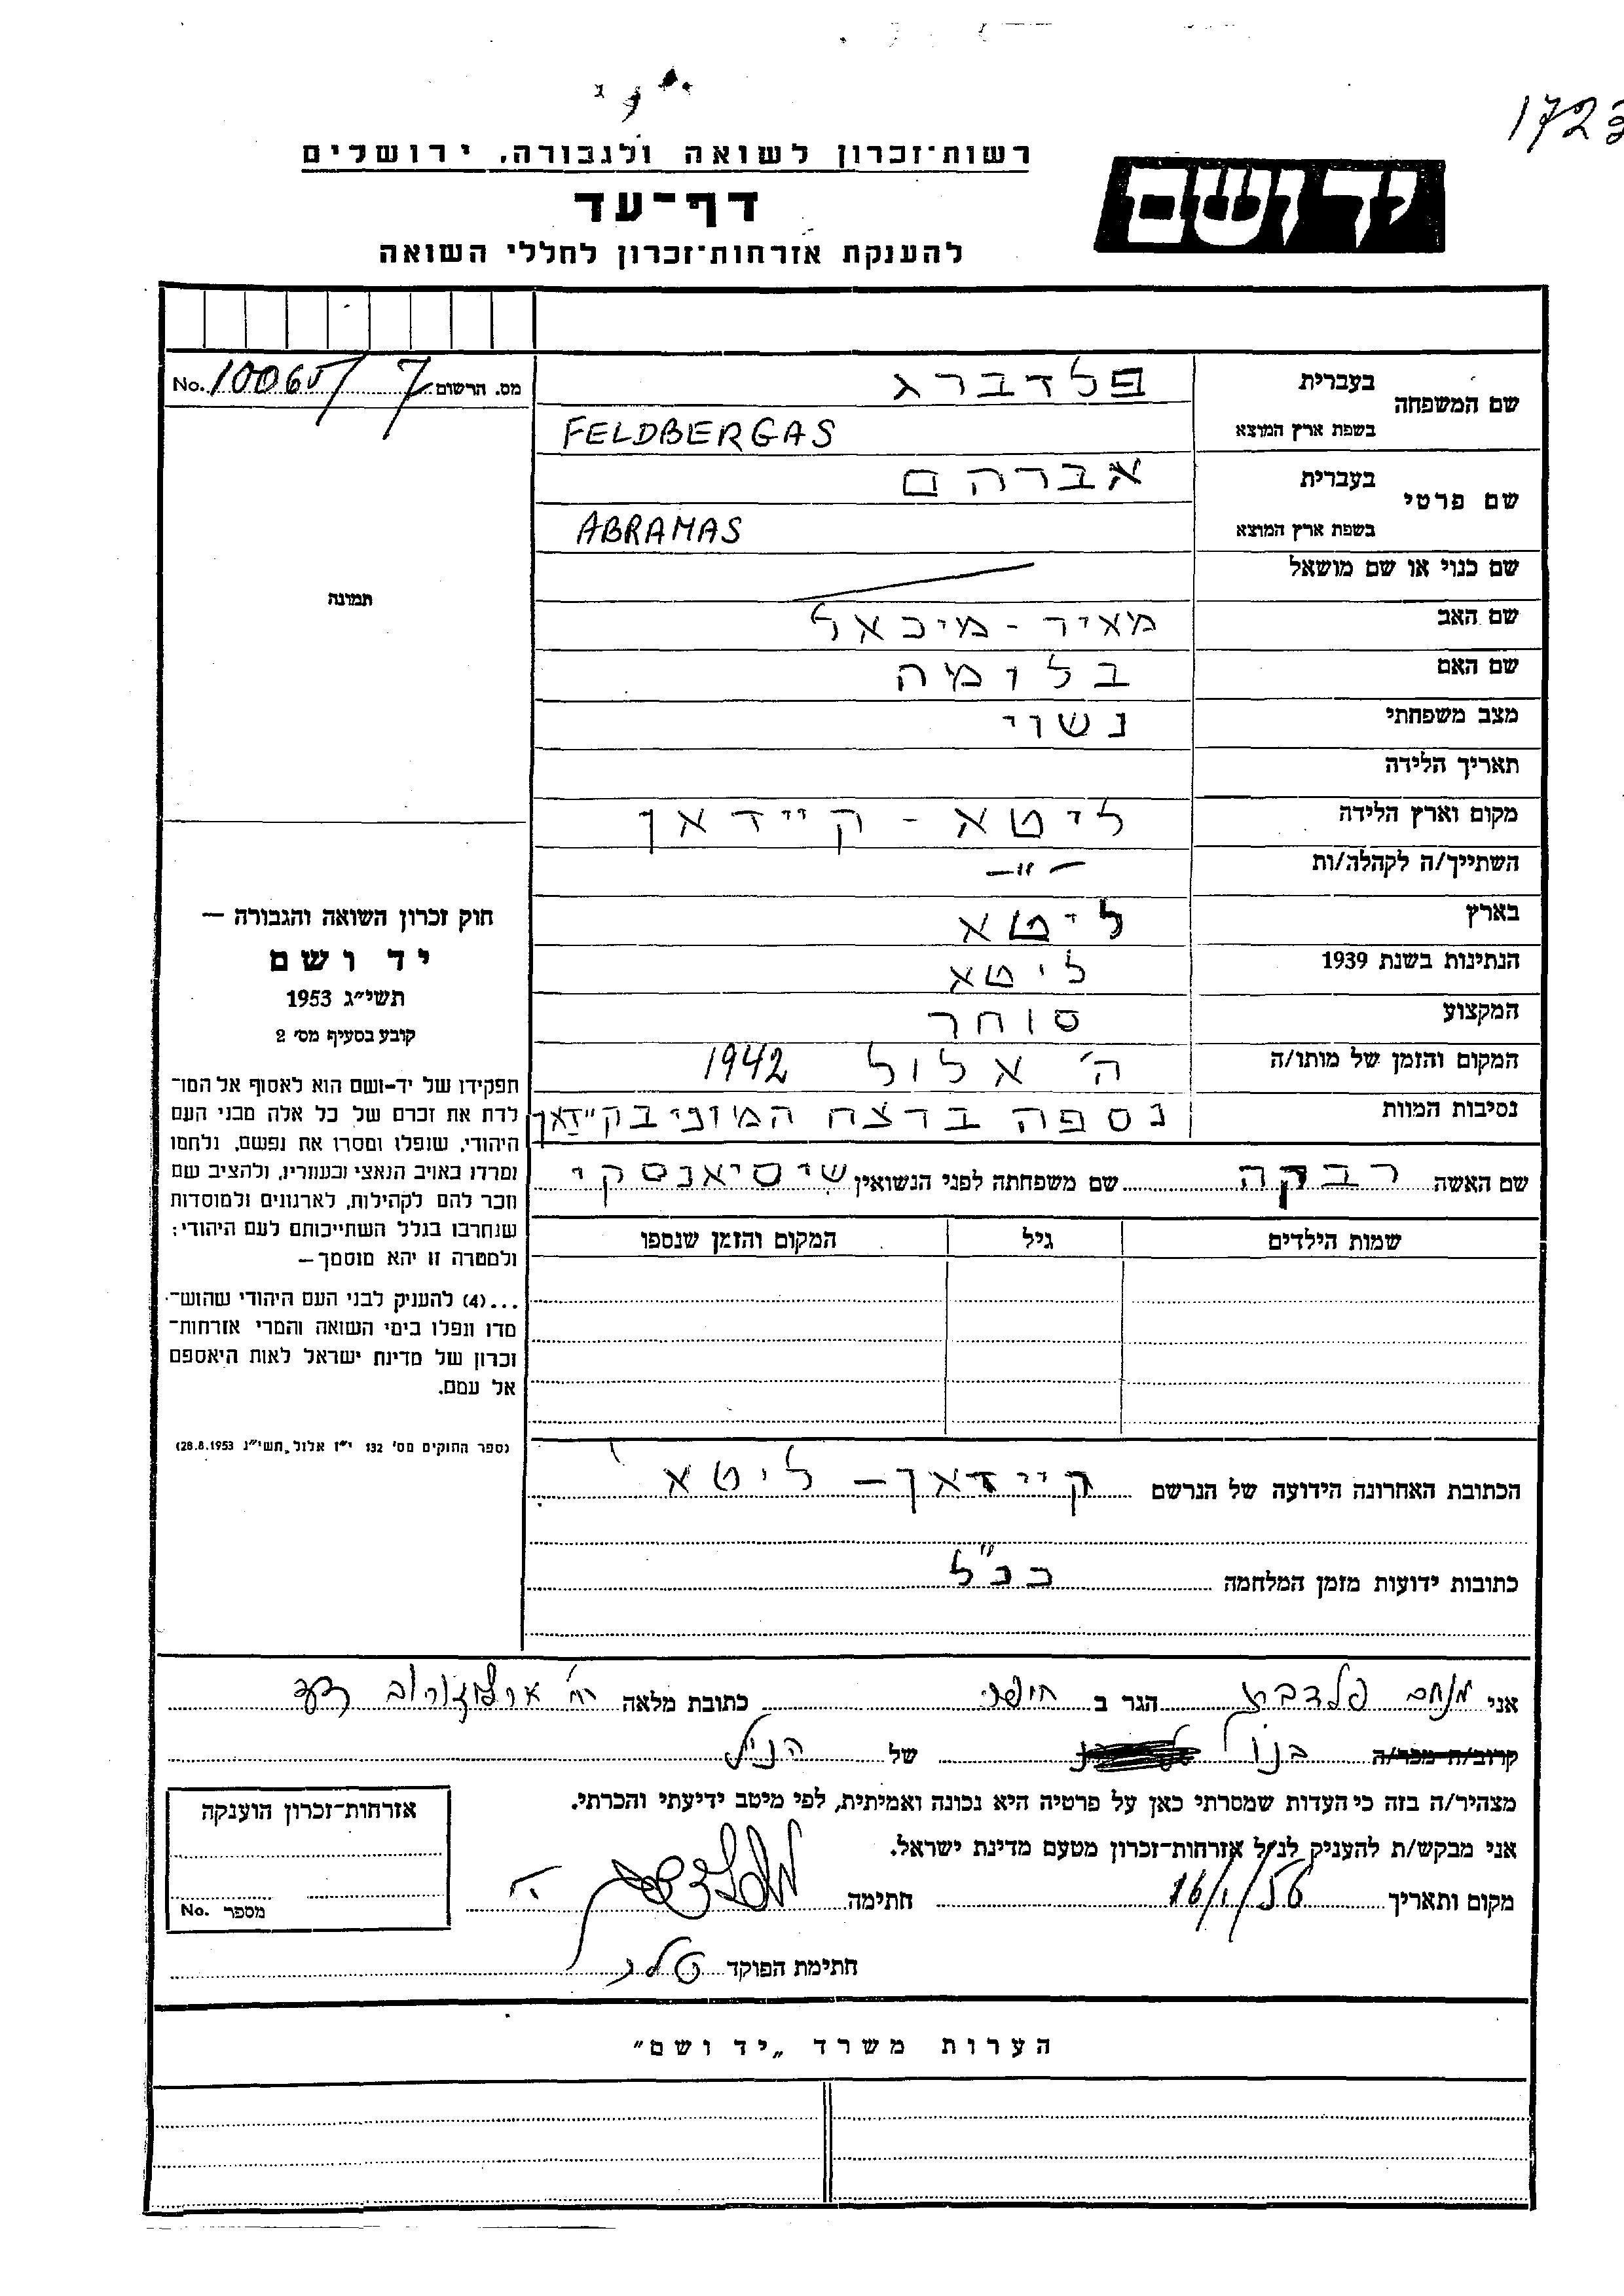 1723
רשות־זכרון לשואה ולגבורה, ירושלים
יד ושם
דף־עד
להענקת אזרחות־זכרון לחללי השואה
No. 10065/7 מס. הרשום
שם המשפחה
בעברית פלדברג
בשפת ארץ המוצא FELDBERGAS
שם פרטי
בעברית אברהם
בשפת ארץ המוצא ABRAMAS
שם כנוי או שם מושאל
שם האב מאיר - מיכאל
שם האם בלומה
מצב משפחתי נשוי
תאריך הלידה
מקום וארץ הלידה ליטא - קיידאן
השתייך/ה לקהלה/ות — " —
בארץ ליטא
הנתינות בשנת 1939 ליטא
המקצוע סוחר
המקום והזמן של מותו/ה ה' אלול 1942
נסיבות המוות נספה ברצח המוני בקיידאן
שם האשה רבקה שם משפחתה לפני הנשואין שיסיאנסקי
שמות הילדים גיל המקום והזמן שנספו
הכתובת האחרונה הידועה של הנרשם קיידאן – ליטא
כתובות ידועות מזמן המלחמה כנ"ל
תמונה
חוק זכרון השואה והגבורה —
יד ושם
תשי״ג 1953
קובע בסעיף מס׳ 2
תפקידו של יד-ושם הוא לאסוף אל המו־
לדת את זכרם של כל אלה מבני העם
היהודי, שנפלו ומסרו את נפשם, נלחמו
ומרדו באויב הנאצי ובעוזריו, ולהציב שם
וזכר להם לקהילות, לארגונים ולמוסדות
שנחרבו בגלל השתייכותם לעם היהודי;
ולמטרה זו יהא מוסמך —
...(4) להעניק לבני העם היהודי שהוש־
מדו ונפלו בימי השואה והמרי אזרחות־
זכרון של מדינת ישראל לאות היאספם
אל עמם.
(ספר החוקים מס׳ 132 י״ז אלול, תשי״ג 28.8.1953)
אני מנחם פלדברג הגר ב חיפה כתובת מלאה רח' ארלוזורוב
קרוב/ה מכר/ה בנו של הנ"ל
מצהיר/ה בזה כי העדות שמסרתי כאן על פרטיה היא נכונה ואמיתית, לפי מיטב ידיעתי והכרתי.
אני מבקש/ת להעניק לנ״ל אזרחות־זכרון מטעם מדינת ישראל.
מקום ותאריך 16/1/56 חתימה
חתימת הפוקד
אזרחות־זכרון הוענקה
מספר No.
הערות משרד „יד ושם״